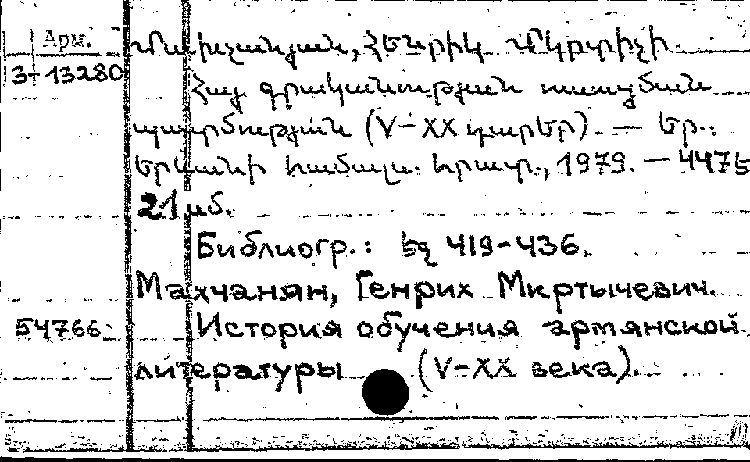 Арм.
3-13280
Մախչանյան, Հենրիկ Մկրտիչի.
Հայ գրականության ուսուցման
պատմություն (V-XX դարեր). — Եր.:
Երևանի համալս. հրատ., 1979. — 447 Ե
21 սմ.
Библиогр.: էջ 419-436.
Махчанян, Генрих Мкртычевич.
54766 История обучения армянской
литературы (V-XX века).